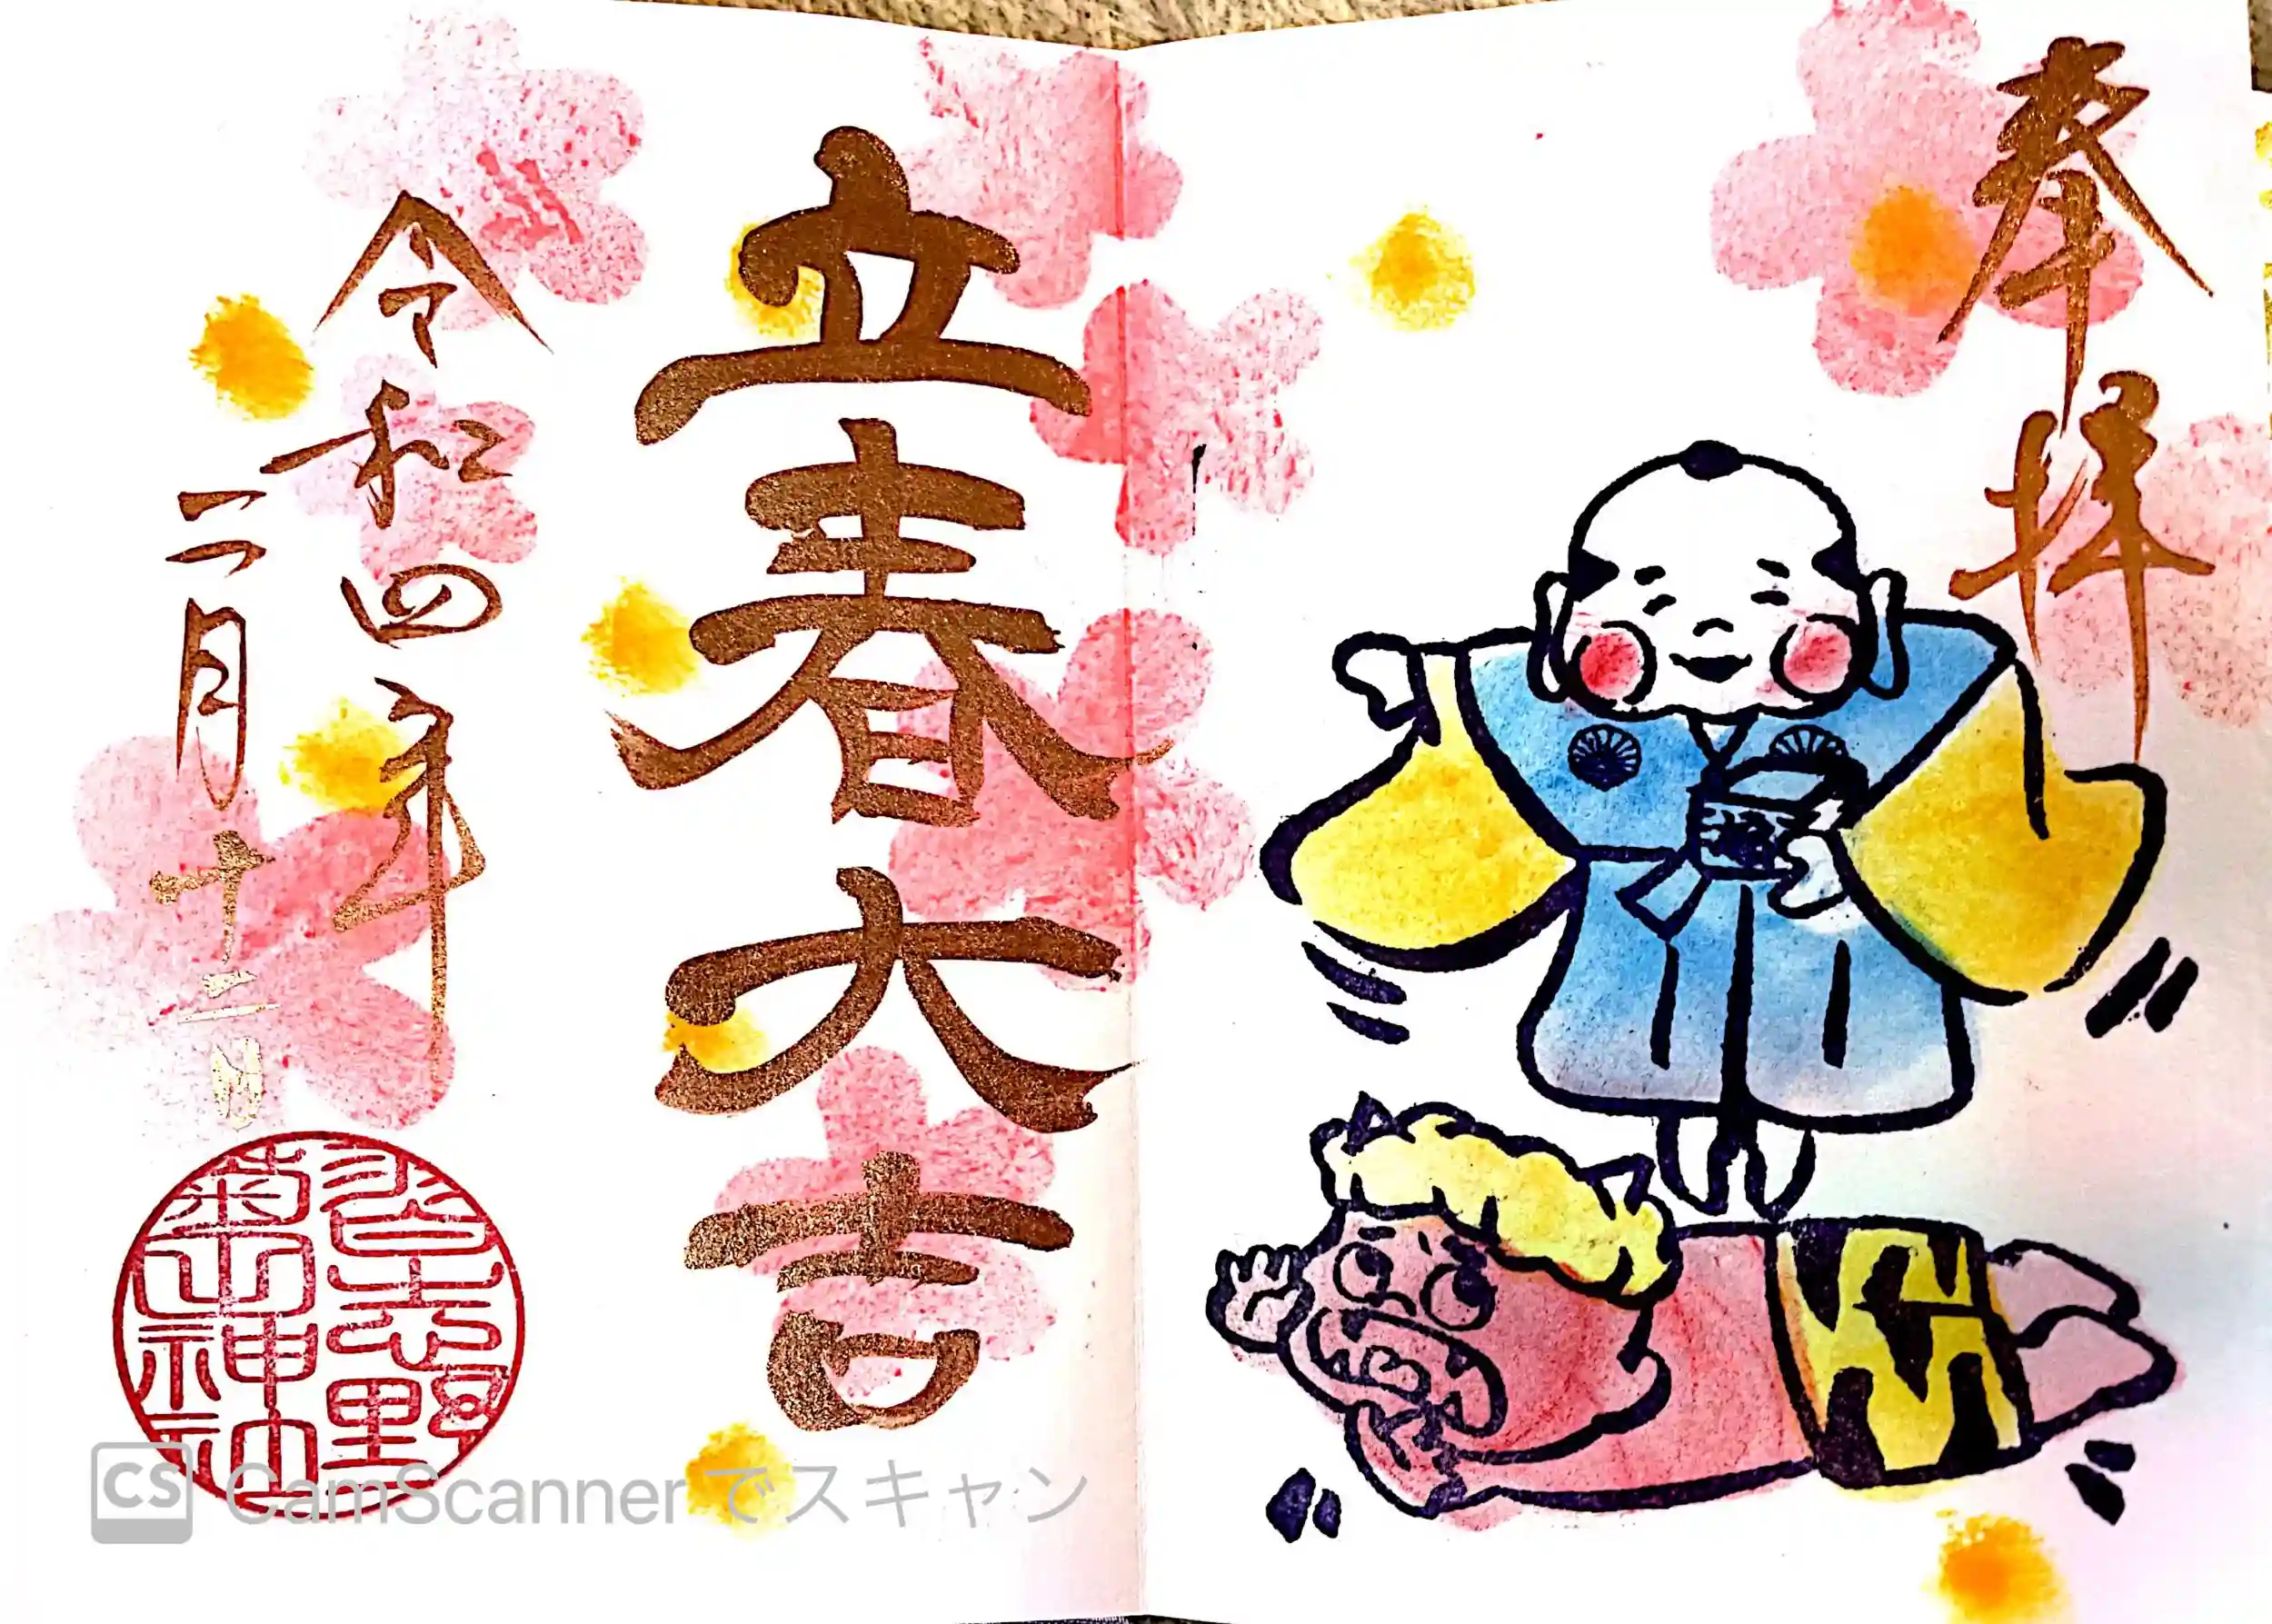 奉拝
立春大吉
令和四年
二月十二日
習志野
菊田神社
CS CamScannerでスキャン